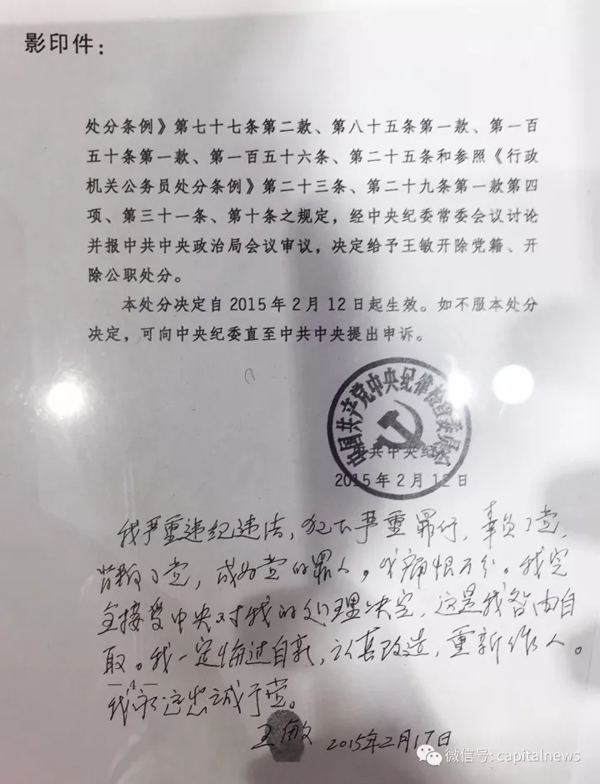 影印件：
处分条例》第七十七条第二款、第八十五条第一款、第一百
五十条第一款、第一百五十六条、第二十五条和参照《行政
机关公务员处分条例》第二十三条、第二十九条第一款第四
项、第三十一条、第十条之规定，经中央纪委常委会议讨论
并报中共中央政治局会议审议，决定给予王敏开除党籍、开
除公职处分。
本处分决定自2015年2月12日起生效。如不服本处分
决定，可向中央纪委直至中共中央提出申诉。
中国共产党中央纪律检查委员会
中共中央纪委
2015年2月12日
我严重违纪违法，犯下严重罪行，辜负了党，
背叛了党，成为党的罪人。我痛恨万分。我完
全接受中央对我的处理决定，这是我咎由自
取。我一定悔过自新，认真改造，重新作人。
我永远忠诚于党。
王敏 2015年2月17日
微信号: capitalnews